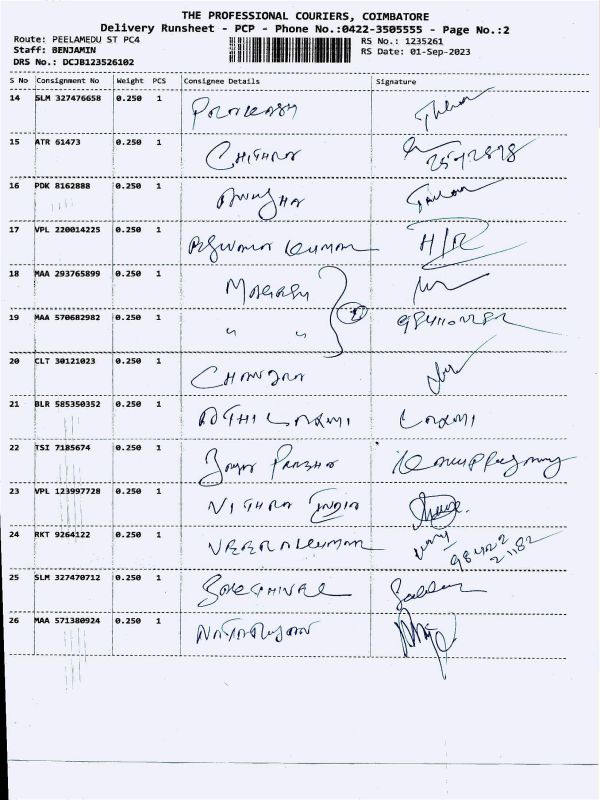 THE PROFESSIONAL COURIERS, COIMBATORE
Delivery Runsheet - PCP - Phone No.:0422-3505555 - Page No.:2
Route: PEELAMEDU ST PC4 RS No.: 1235261
Staff: BENJAMIN RS Date: 01-Sep-2023
DRS No.: DCJB123526102
S No Consignment No Weight PCS Consignee Details Signature
14 SLM 327476658 0.250 1 Prakash
15 ATR 61473 0.250 1 Chithra
16 PDK 8162888 0.250 1 Anusha
17 VPL 220014225 0.250 1 Kumar H/R
18 MAA 293765899 0.250 1
19 MAA 570682982 0.250 1 " " 2
20 CLT 30121023 0.250 1 Chandra
21 BLR 585350352 0.250 1 Athi Laxmi Laxmi
22 TSI 7185674 0.250 1
23 VPL 123997728 0.250 1 Nithra India
24 RKT 9264122 0.250 1 Veerakumar
25 SLM 327470712 0.250 1 Sakthivel
26 MAA 571380924 0.250 1 Natarajan